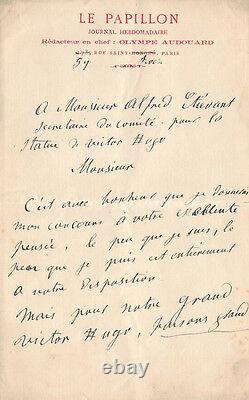 LE PAPILLON
JOURNAL HEBDOMADAIRE
Rédacteur en chef : OLYMPE AUDOUARD
RUE SAINT-HONORÉ, PARIS
54
A Monsieur Alfred Etiévant
Secretaire du Comité pour la
Statue de Victor Hugo
Monsieur
C'est avec bonheur que je donnerai
mon concours à votre excellente
pensée, le peu que je puis, le
peu que je puis est entierement
a votre disposition
Mais pour notre grand
Victor Hugo, faisons grand